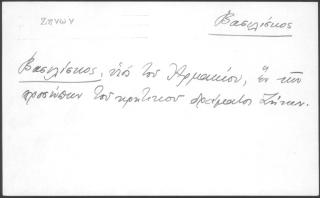 ΖΗΝΩΝ
Βασιλίσκος
Βασιλίσκος, υἱὸς τοῦ Ἁρματίου, ἓν τῶν
προσώπων τοῦ κρητικοῦ δράματος Ζήνων.